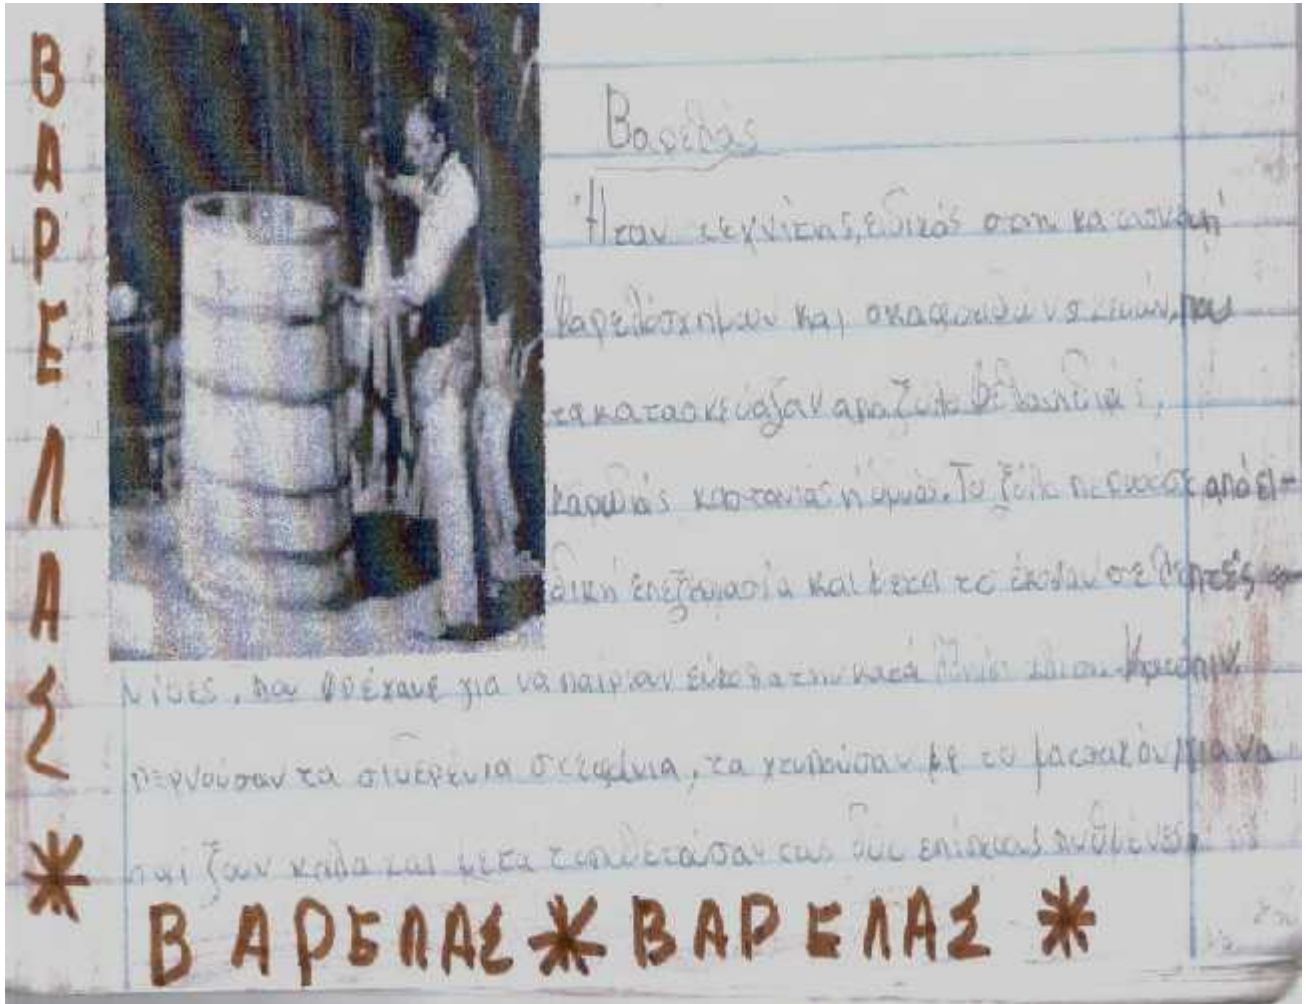 ΒΑΡΕΛΑΣ *
Βαρελάς
Ήταν τεχνίτης, ειδικός στην κατασκευή
βαρελόσχημων και σκαφοειδών σκευών, που
τα κατασκεύαζαν από ξύλο βελανιδιάς,
καρυδιάς καστανιάς ή μουριάς. Το ξύλο περνούσε από ει-
δική επεξεργασία και μετά το έκοβαν σε λεπτές σα-
νίδες, που βρέχανε για να παίρναν εύκολα την κατάλληλη κλίση. Κατόπιν
περνούσαν τα σιδερένια στεφάνια, τα χτυπούσαν με το ματσακόνι για να
καλά και μετά τοποθετούσαν τους δύο επίπεδους πυθμένες
ΒΑΡΕΛΑΣ * ΒΑΡΕΛΑΣ *